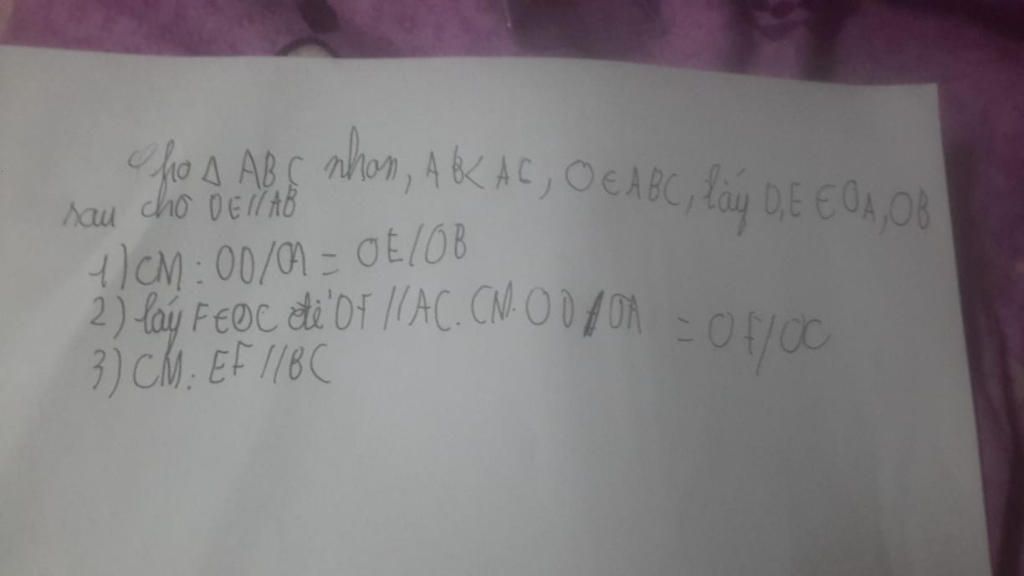 Cho Δ ABC nhọn, AB < AC, O ∈ ABC, lấy D, E ∈ OA, OB
sau cho DE // AB
1) CM: OD/OA = OE/OB
2) lấy F ∈ OC để DF // AC. CM. OD/OA = OF/OC
3) CM: EF // BC